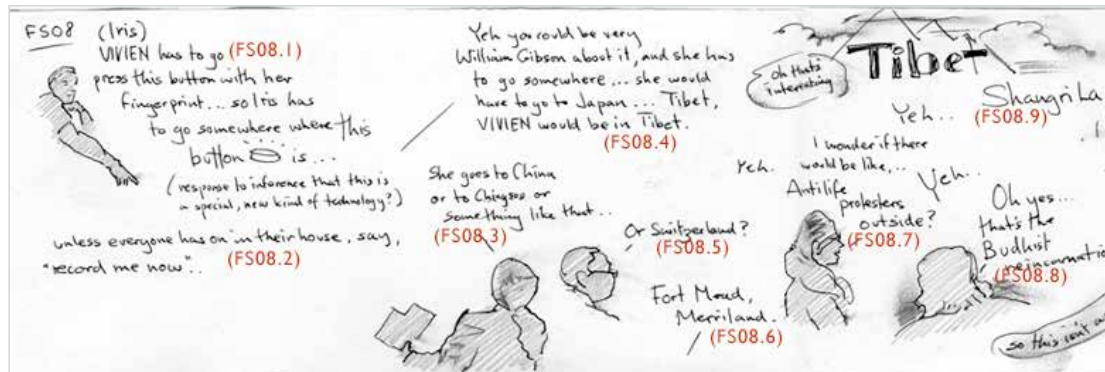 FS08
(Iris)
VIVIEN has to go (FS08.1)
press this button with her
fingerprint... so Iris has
to go somewhere where this
button is...
(response to inference that this is
a special, new kind of technology?)
unless everyone has on in their house, say,
"record me now".. (FS08.2)
Yeh you could be very
William Gibson about it, and she has
to go somewhere... she would
have to go to Japan... Tibet,
VIVIEN would be in Tibet.
(FS08.4)
She goes to China
or to
something like that..
(FS08.3)
Or Switzerland?
(FS08.5)
Fort Mead,
Merriland.
(FS08.6)
oh that's
interesting
Tibet
Yeh..
Shangri La
(FS08.9)
Yeh.
I wonder if there
would be like,..
Antilife
protesters
outside?
(FS08.7)
Yeh..
Oh yes...
that's the
Budhist
reincarnatio
(FS08.8)
so this isn't